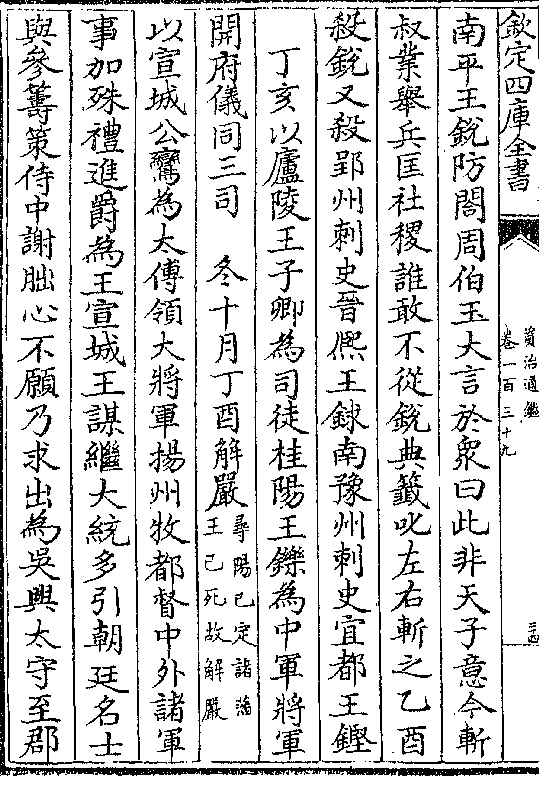 欽定四庫全書
資治通鑑
卷一百三十九
三四
南平王銳防閤周伯玉大言於衆曰此非天子意今斬
叔業舉兵匡社稷誰敢不從銳典籖叱左右斬之乙酉
殺銳又殺郢州刺史晉熈王銶南豫州刺史宜都王鏗
丁亥以廬陵王子卿為司徒桂陽王鑠為中軍將軍
開府儀同三司　冬十月丁酉解嚴尋陽已定諸藩
王已死故解嚴
以宣城公鸞為太傅領大將軍揚州牧都督中外諸軍
事加殊禮進爵為王宣城王謀繼大統多引朝廷名士
與參籌策侍中謝朏心不願乃求出為吳興太守至郡